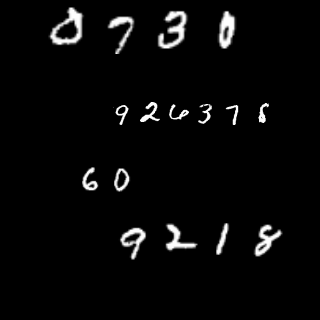 0730
926378
60
9218